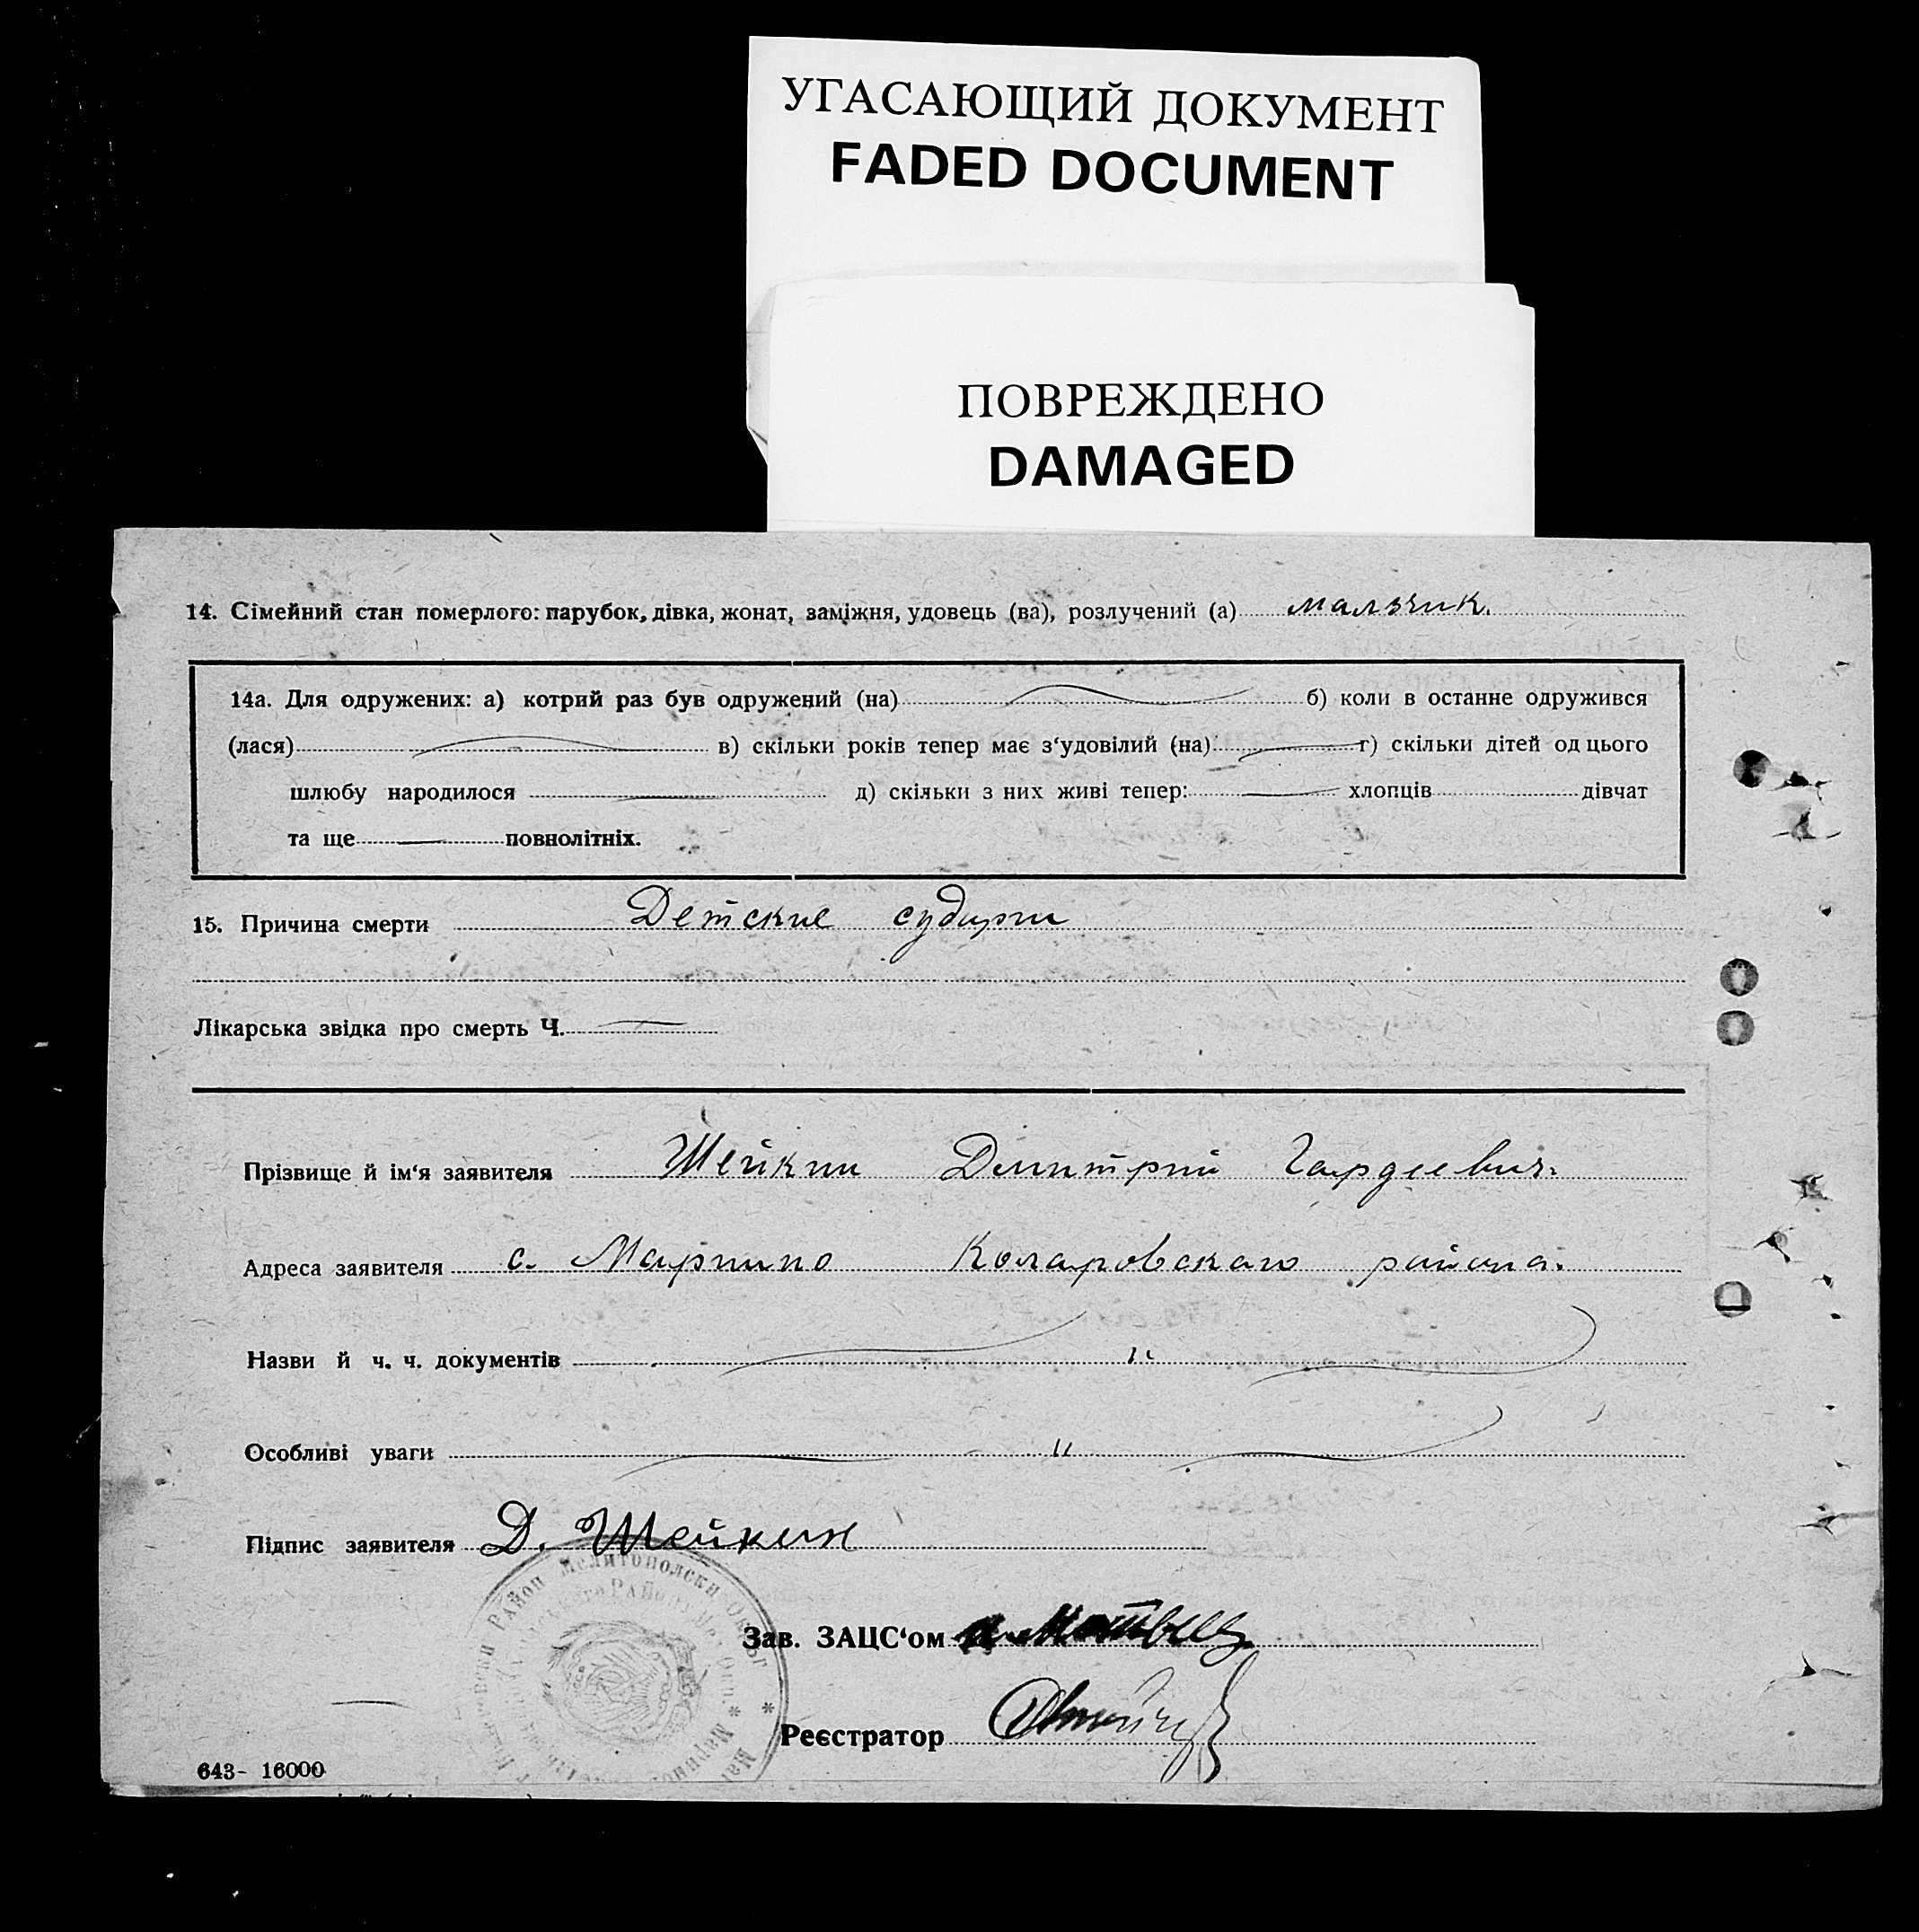 УГАСАЮЩИЙ ДОКУМЕНТ
FADED DOCUMENT
ПОВРЕЖДЕНО
DAMAGED
14. Сімейний стан померлого: парубок, дівка, жонат, заміжня, удовець (ва), розлучений (а) мальчик.
14а. Для одружених: а) котрий раз був одружений (на) б) коли в останне одружився
(лася) в) скільки років тепер має з‘удовілий (на) г) скільки дітей од цього
шлюбу народилося д) скільки з них живі тепер: хлопців дівчат
та ще повнолітніх.
15. Причина смерти Детские
Лікарська звідка про смерть Ч.
Прізвище й ім‘я заявителя Шейкин Дмитрий Гардеевич.
Адреса заявителя с. Марнино Коларовского района.
Назви й ч. ч. документів "
Особливі уваги "
Підпис заявителя Д. Шейкин
Район Мелитополски Округ
Зав. ЗАЦС‘ом
Реєстратор
643- 16000